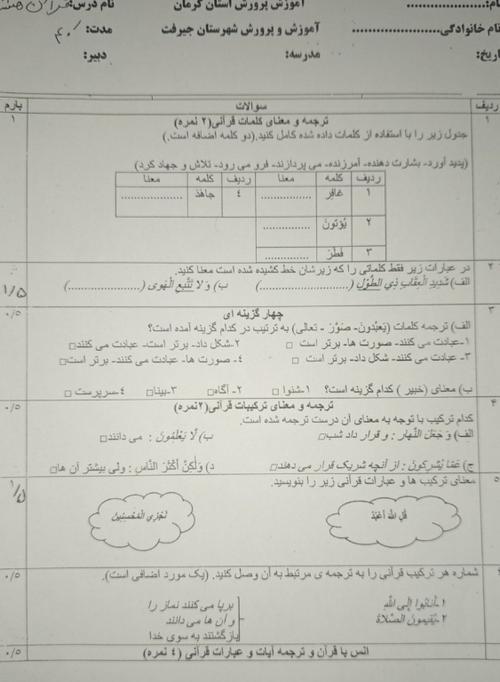 نام:.......................... آموزش پرورش استان کرمان نام درس: قرآن
نام خانوادگی........................ آموزش و پرورش شهرستان جیرفت مدت: ۴۰
تاریخ: مدرسه: دبیر:
ردیف سوالات بارم
۱ ترجمه و معنای کلمات قرآنی(۲ نمره) ۱
جدول زیر را با استفاده از کلمات داده شده کامل کنید.(دو کلمه اضافه است.)
(پدید آورد- بشارت دهنده- آمرزنده- می پردازند- فرو می رود- تلاش و جهاد کرد)
ردیف کلمه معنا ردیف کلمه معنا
۱ غافِرِ .................. ۴ جاهَدَ ..................
۲ یُؤتونَ ..................
۳ فَطَرَ ..................
۲ در عبارات زیر فقط کلماتی را که زیرشان خط کشیده شده است معنا کنید. ۱/۵
الف) شَدیدِ الْعِقابِ ذِی الطَّوْلِ (........................) ب) وَ لا تَتَّبِعِ الْهَوی (........................)
۳ چهار گزینه ای ۰/۵
الف) ترجمه کلمات (یَعبُدونَ- صَوَّرَ - تعالی) به ترتیب در کدام گزینه آمده است؟
۱-عبادت می کنند- صورت ها- برتر است □ ۲-شکل داد- برتر است- عبادت می کنند□
۳- عبادت می کنند- شکل داد- برتر است □ ۴- صورت ها- عبادت می کنند- برتر است□
ب) معنای (خبیر ) کدام گزینه است؟ ۱-شنوا □ ۲- آگاه□ ۳-بینا□ ۴-سرپرست □
۴ ترجمه و معنای ترکیبات قرآنی(۲نمره) ۰/۵
کدام ترکیب با توجه به معنای آن درست ترجمه شده است.
الف) وَ جَعَلَ النَّهار : و قرار داد شب□ ب) لا یَعْلَمُونَ : می دانند□
ج) عَمّا یُشرِکونَ : از آنچه شریک قرار می دهند□ د) وَلکِنَّ أَکْثَرَ النّاسِ : ولی بیشتر آن ها□
۵ معنای ترکیب ها و عبارات قرآنی زیر را بنویسید. ۱/۵
قُلِ اللّهَ أَعْبُدُ نَجْزِی الْمُحْسِنِینَ
شماره هر ترکیب قرآنی را به ترجمه ی مرتبط به آن وصل کنید. (یک مورد اضافی است). ۰/۵
۱-أنابُوا إلَی اللهِ برپا می کنند نماز را
۲-یُقیمونَ الصَّلاةَ و آن ها می دانند
بازگشتند به سوی خدا
انس با قرآن و ترجمه آیات و عبارات قرآنی (۴ نمره) ۰/۵